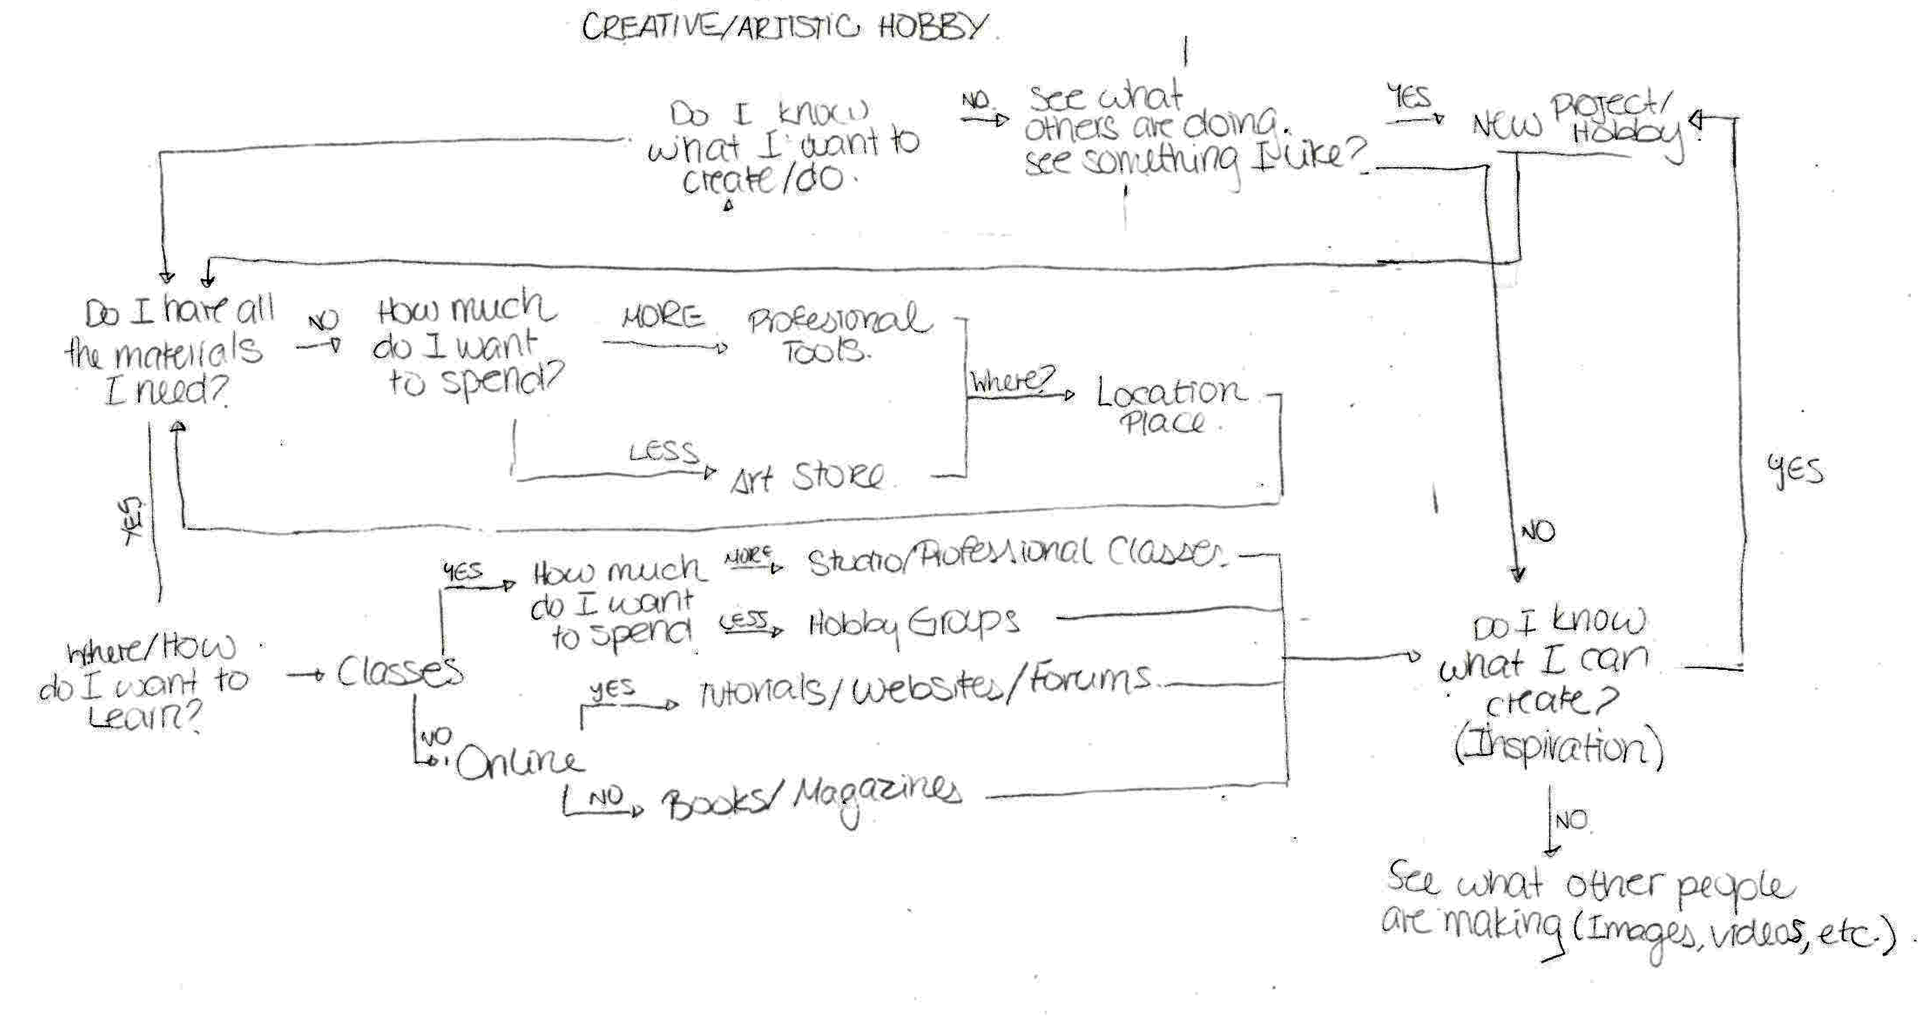 CREATIVE/ARTISTIC HOBBY.
Do I know
what I want to
create/do.
NO.
See what
others are doing.
see something I like?
YES
NEW Project/
Hobby
Do I have all
the materials
I need?
NO
How much
do I want
to spend?
MORE
Profesional
Tools.
LESS
Art Store.
Where?
Location
Place.
YES
NO
YES
Where/How
do I want to
Learn?
Classes
YES
How much
do I want
to spend
MORE
Studio/Professional Classes.
LESS
Hobby Groups
NO
Online
YES
Tutorials/Websites/Forums.
NO
Books/Magazines
Do I know
what I can
create?
(Inspiration)
NO.
See what other people
are making (Images, videos, etc.)